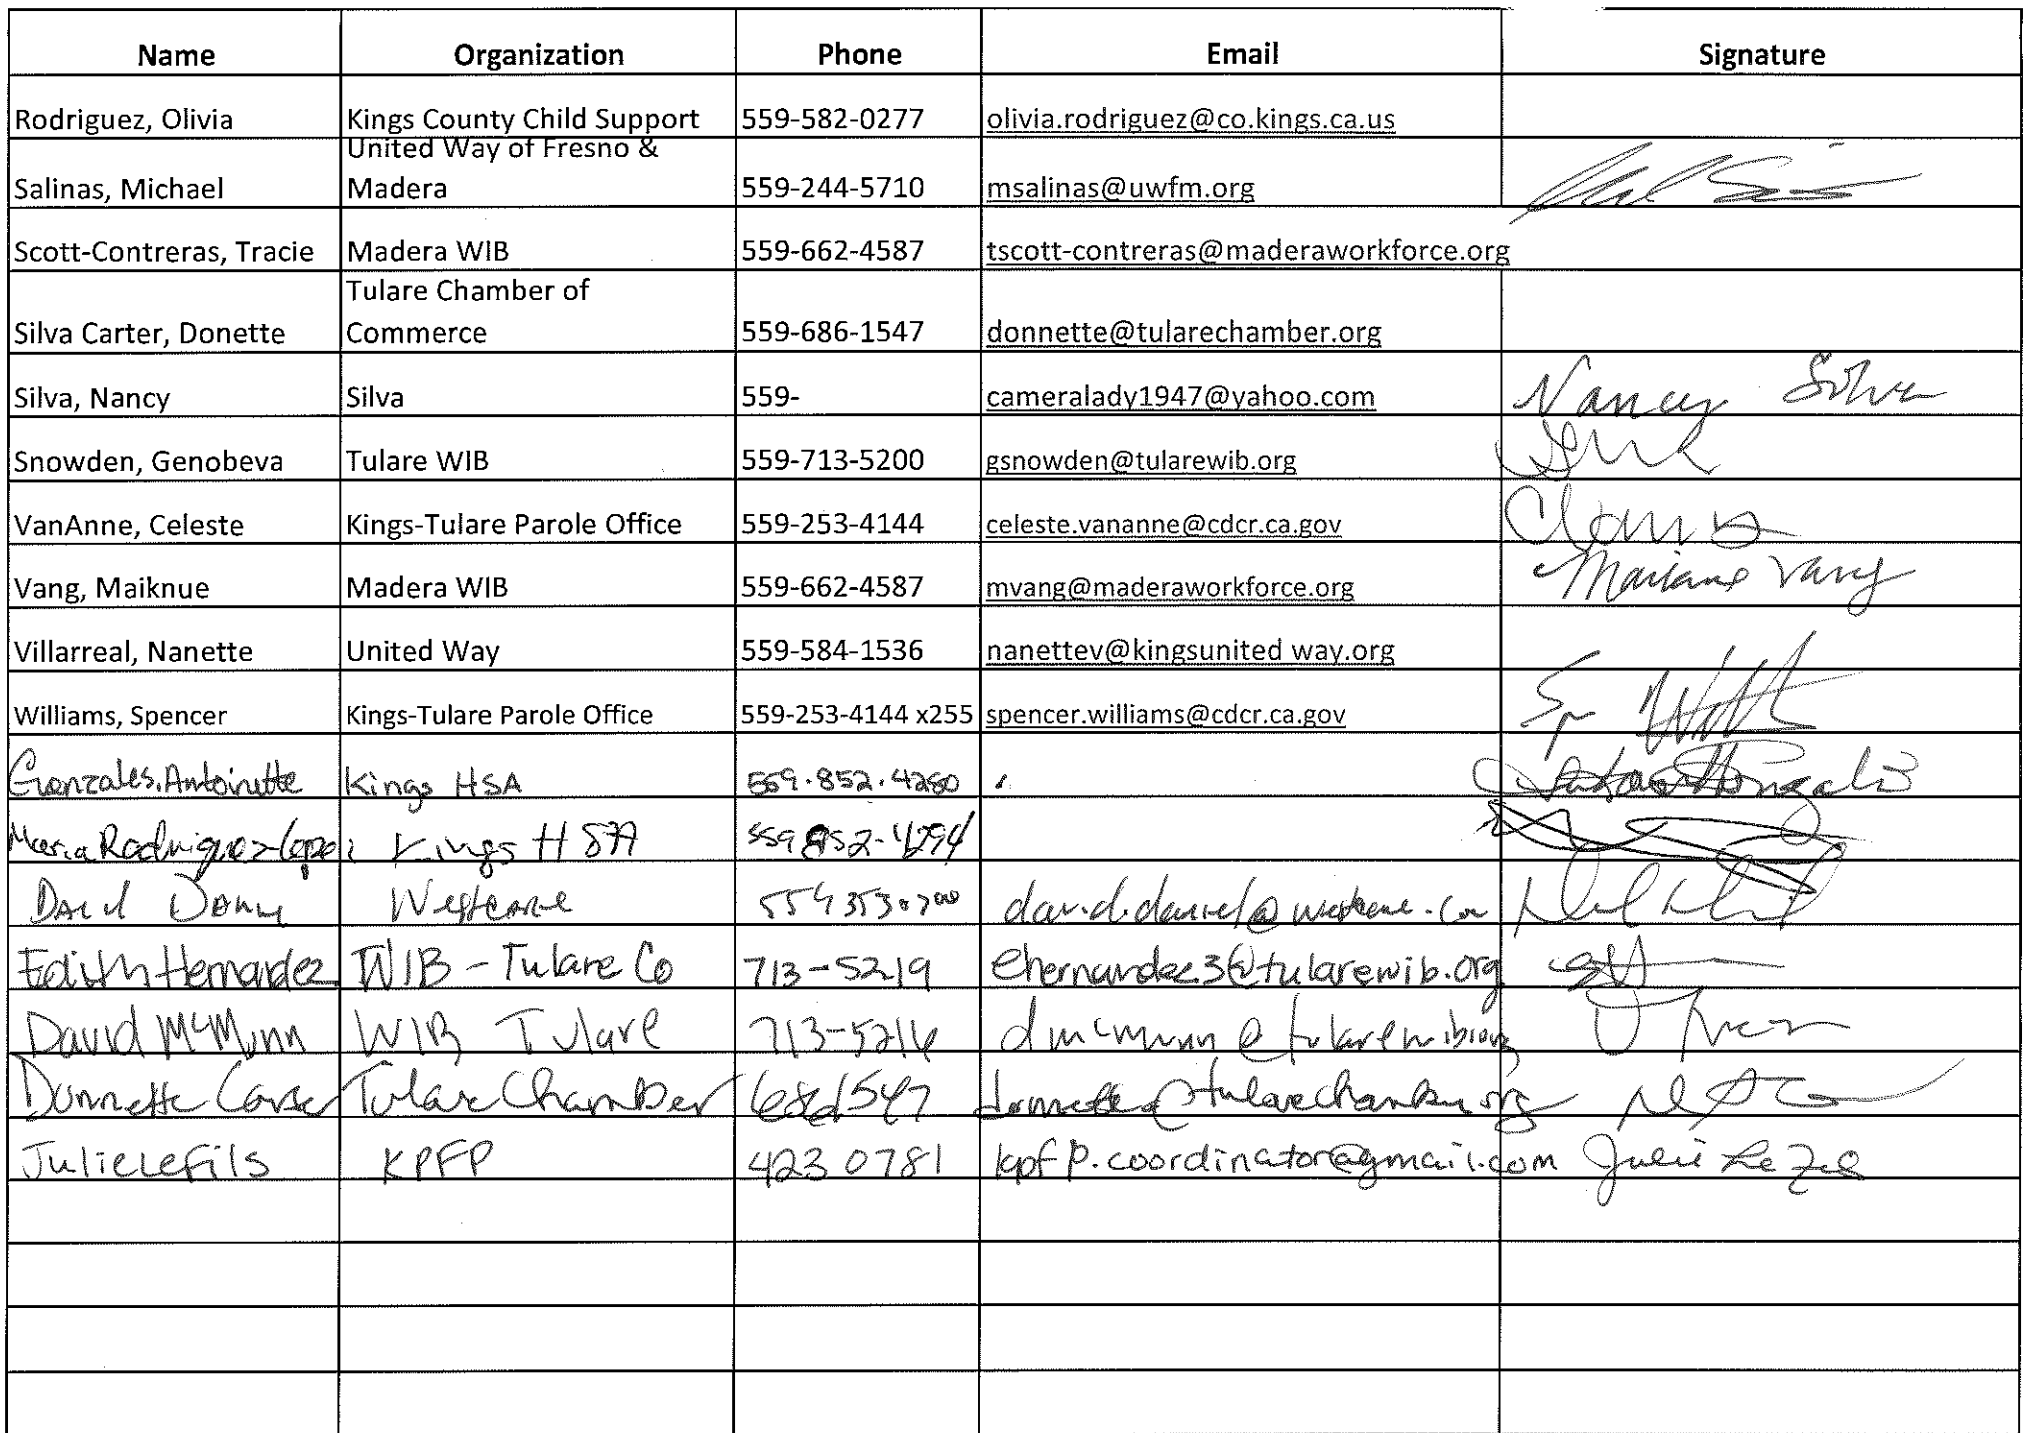 Name Organization Phone Email Signature
Rodriguez, Olivia Kings County Child Support 559-582-0277 olivia.rodriguez@co.kings.ca.us
United Way of Fresno &
Salinas, Michael Madera 559-244-5710 msalinas@uwfm.org
Scott-Contreras, Tracie Madera WIB 559-662-4587 tscott-contreras@maderaworkforce.org
Tulare Chamber of
Silva Carter, Donette Commerce 559-686-1547 donnette@tularechamber.org
Silva, Nancy Silva 559- cameralady1947@yahoo.com Nancy Silva
Snowden, Genobeva Tulare WIB 559-713-5200 gsnowden@tularewib.org
VanAnne, Celeste Kings-Tulare Parole Office 559-253-4144 celeste.vananne@cdcr.ca.gov
Vang, Maiknue Madera WIB 559-662-4587 mvang@maderaworkforce.org Vang
Villarreal, Nanette United Way 559-584-1536 nanettev@kingsunited way.org
Williams, Spencer Kings-Tulare Parole Office 559-253-4144 x255 spencer.williams@cdcr.ca.gov
Gonzales, Antoinette Kings HSA 559.852.4280
Maria Rodriguez-Lopez Kings HSA 559 852-4294
David Westcare david.daniel@westcare.com
Edith Hernandez WIB - Tulare Co 713-5219 ehernandez3@tularewib.org
David McMunn WIB Tulare 713-5216 dmcmunn@tularewib.org
Donnette Carter Tulare Chamber 6861547 donnette@tularechamber.org
Julie LeFils KPFP 423 0781 kpfp.coordinator@gmail.com Julie Le Fils